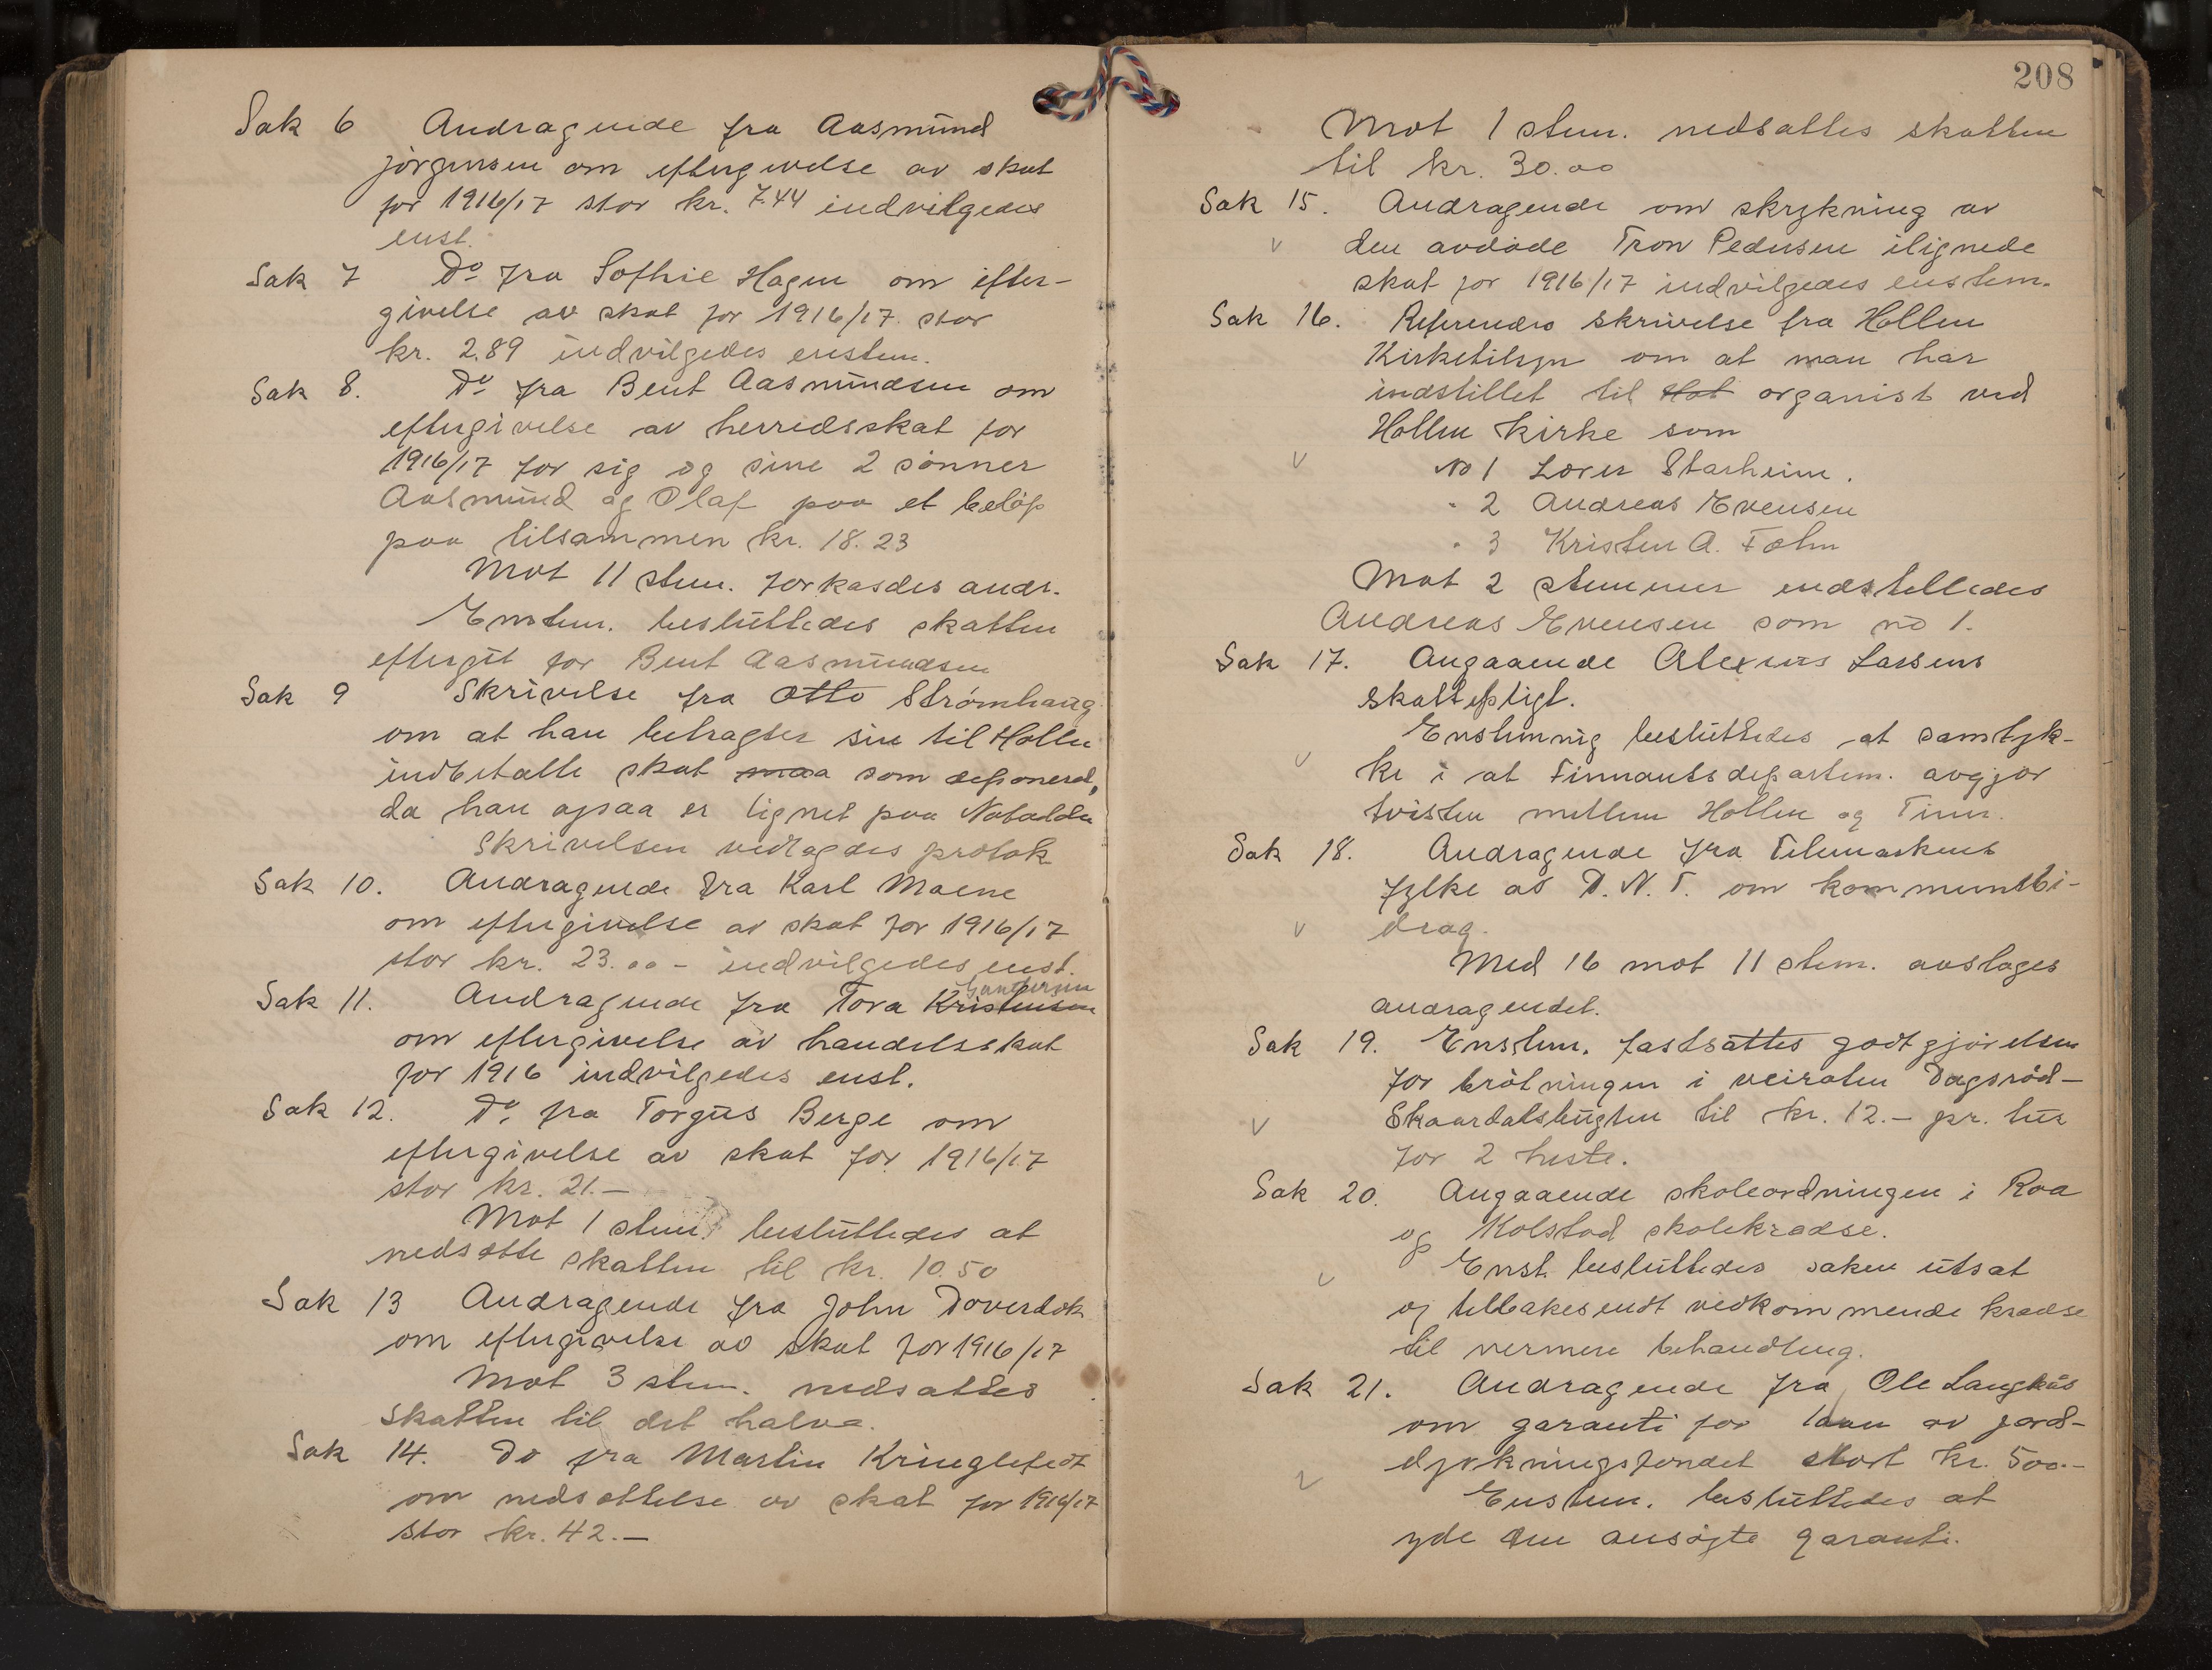 Sak 6 Andragende fra Aasmund
Jörgensen om eftergivelse av skat
for 1916/17 stor kr. 7.44 indvilgedes
enst.
Sak 7 Do fra Sofhie Hagen om efter-
givelse av skat for 1916/17 stor
kr. 2.89 indvilgedes enstem.
Sak 8. Do fra Bent Aasmundsen om
eftergivelse av herredsskat for
1916/17 for sig og sine 2 sönner
Aasmund og Olaf paa et belöp
paa tilsammen kr. 18.23
Mot 11 stem. forkasdes andr.
Enstem. besluttedes skatten
eftergit for Bent Aasmundsen
Sak 9 Skrivelse fra Otto Strømhaug
om at han betragter sin til Hollen
indbetalte skat maa som deponeret,
da han ogsaa er lignet paa Notodden
Skrivelsen vedlagdes protok
Sak 10. Andragende fra Karl Moene
om eftergivelse av skat for 1916/17
stor kr. 23.00 - indvilgedes enst.
Gundersen
Sak 11. Andragende fra Tora Kristensen
om eftergivelse av handelsskat
for 1916 indvilgedes enst.
Sak 12. Do fra Torgus Berge om
eftergivelse av skat for 1916/17
stor kr. 21.—
Mot 1 stem. besluttedes at
nedsætte skatten til kr. 10.50
Sak 13 Andragende fra John Doverdok
om eftergivelse av skat for 1916/17
Mot 3 stem. nedsattes
skatten til det halve.
Sak 14. Do fra Martin Kringlefedt
om nedsættelse av skat for 1916/17
stor kr. 42.—
208
Mot 1 stem. nedsattes skatten
til kr. 30.00
Sak 15. Andragende om strykning av
den avdöde Tron Pedersen ilignede
skat for 1916/17 indvilgedes enstem.
Sak 16. Refererdes skrivelse fra Hollen
Kirketilsyn om at man har
indstillet til Hol organist ved
Hollen kirke som
No 1 Lærer Starheim.
" 2 Andreas Evensen
" 3 Kristen A. Folm
Mot 2 stemmer indstilledes
Andreas Evensen som no 1.
Sak 17. Angaaende Alexius Lassens
skattepligt.
Enstemmig besluttedes at samtyk-
ke i at Finnantsdepartem. avgjør
tvisten mellem Hollen og Tinn.
Sak 18. Andragende fra Telemarkens
fylke av D. N. T. om kommunebi-
drag.
Med 16 mot 11 stem. avslages
andragendet.
Sak 19. Enstem. fastsattes godtgjörelsen
for brötningen i veiroten Dagsröd-
Skaardalsbugten til kr. 12.— pr. tur
for 2 heste.
Sak 20. Angaaende skoleordningen i Roa
og Kolstad skolekredse.
Enst. besluttedes saken utsat
og tilbakesendt vedkommende kredse
til nermere behandling.
Sak 21. Andragende fra Ole Langkås
om garanti for laan av jord-
dyrkningsfondet stort kr. 500.—
Enstem. besluttedes at
yde den ansögte garanti.